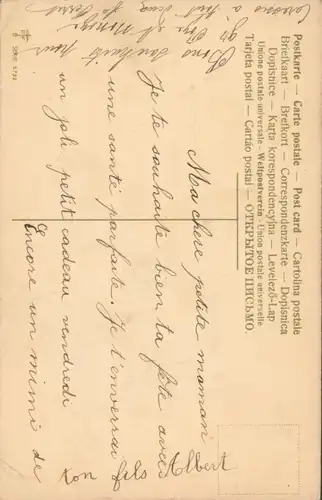 Postkarte — Carte postale — Post card — Cartolina postale
Briefkaart — Brefkort — Correspondenzkarte — Dopisnica
Dopisnice — Karta korespondencyjna — Levelező-Lap
Union postale universelle — Weltpostverein — Union postale universelle
Tarjeta postal — Cartão postal — ОТКРЫТОЕ ПИСЬМО.
Ma chère petite maman
Je te souhaite bien ta fête avec
une santé parfaite. Je t'enverrai
un joli petit cadeau vendredi
Encore un mimi de
ton fils Albert
Bons souhaits